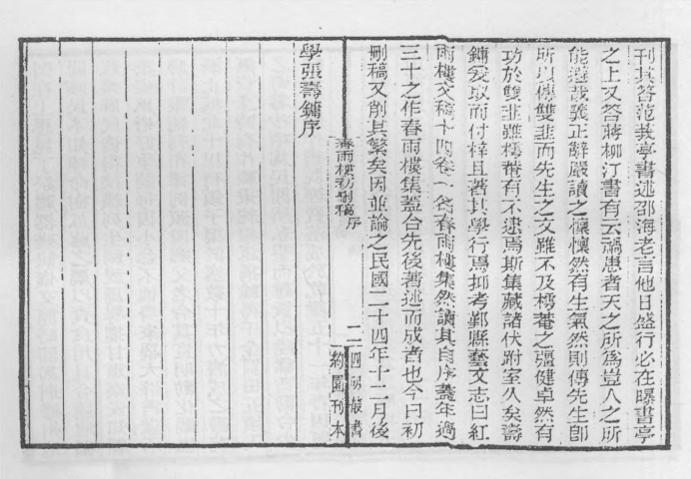 刊其答范莪亭書述邵海老言他日盛行必在曝書亭
之上又答蔣柳汀書有云禍患者天之所為豈人之所
能避哉義正辭嚴讀之懍懍然有生氣然則傳先生卽
所以傳雙韭而先生之文雖不及樗菴之彊健卓然有
功於雙韭雖樗菴有不逮焉斯集藏諸伏跗室久矣壽
鏞爰取而付梓且著其學行焉抑考鄞縣藝文志曰紅
雨樓文稿十四卷一名春雨樓集然讀其自序蓋年過
三十之作春雨樓集蓋合先後著述而成者也今曰初
刪稿又削其繁矣因並論之民國二十四年十二月後
學張壽鏞序
春雨樓初刪稿 序
二
四明叢書
約園刊本